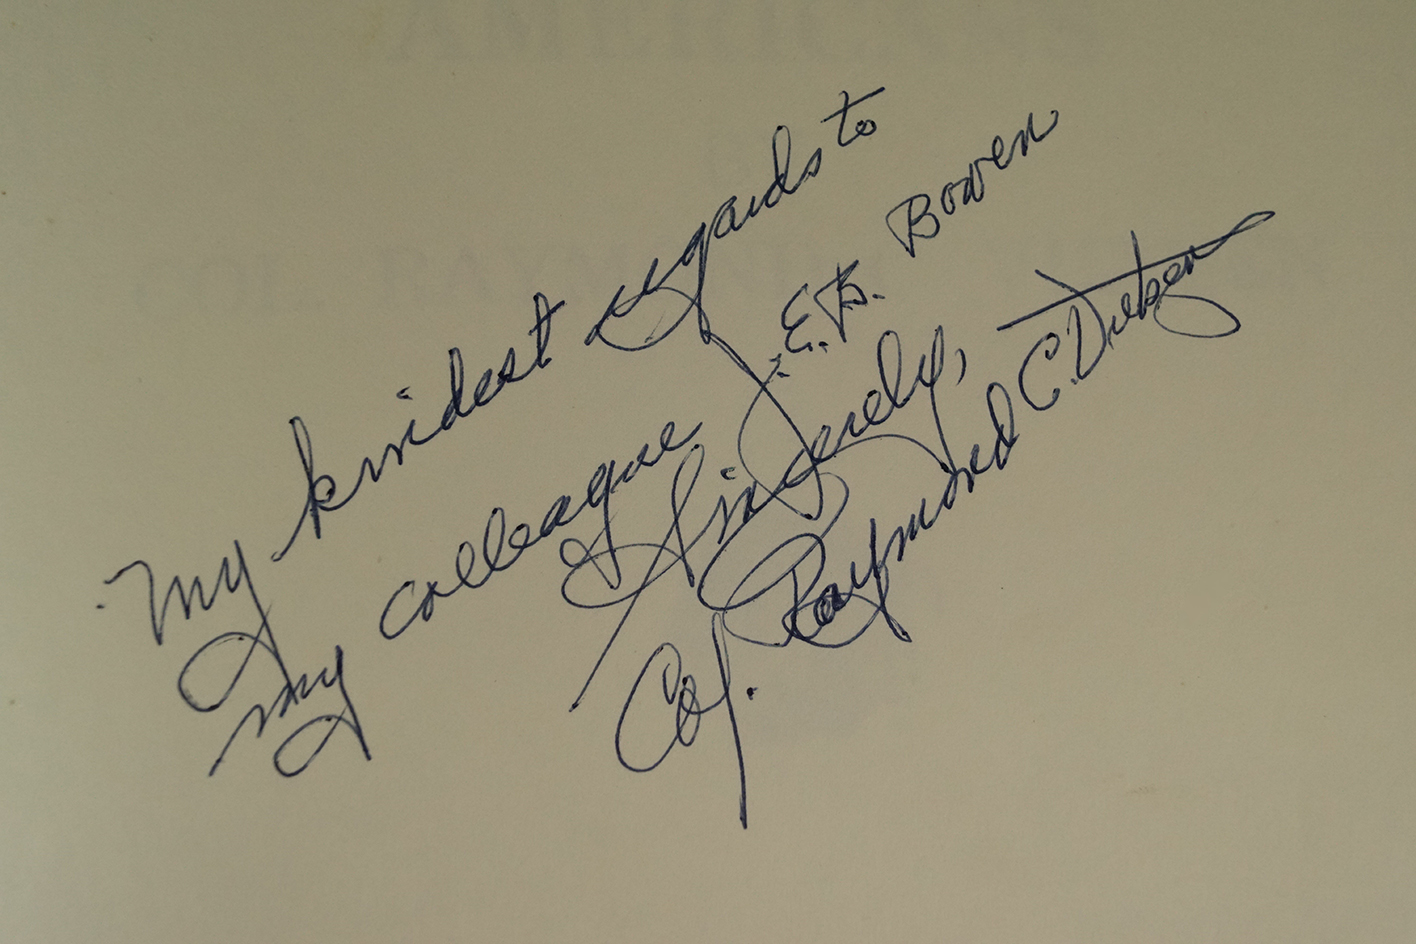 My kindest regards to
my colleague : E.B. Bowen
Sincerely,
Col. Raymond C.